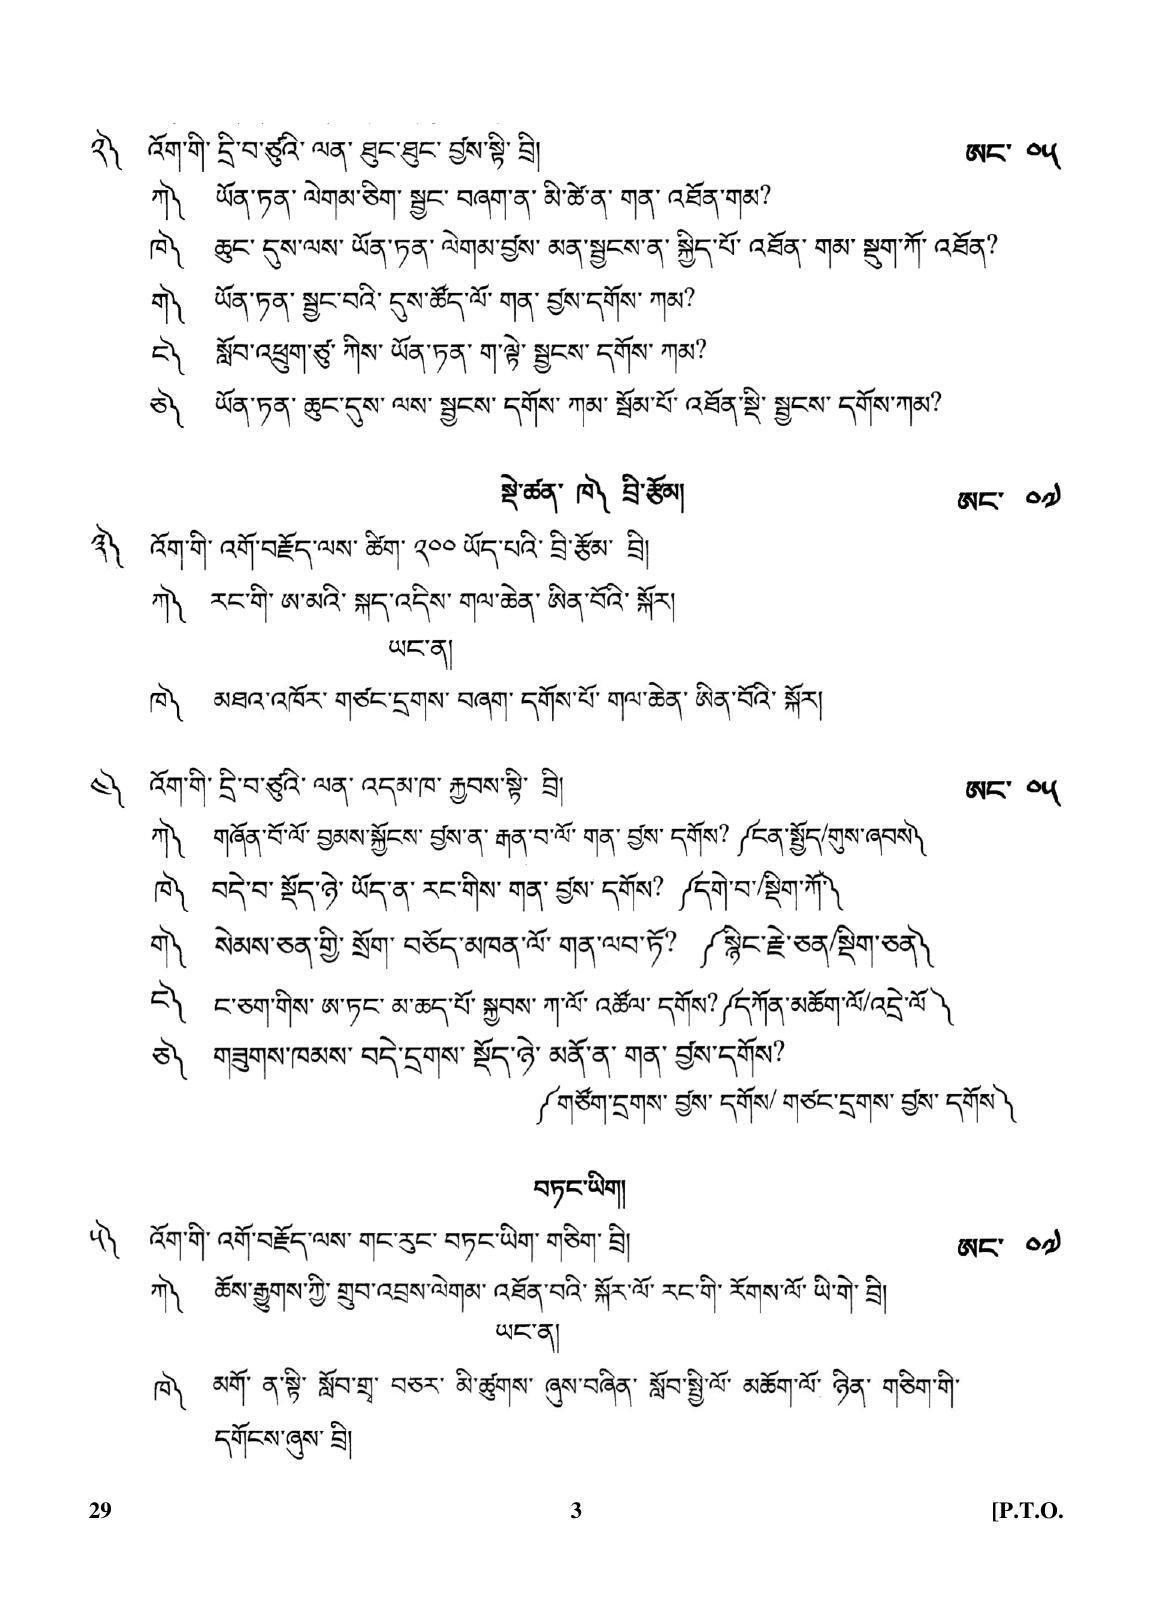 ༢༽ འོག་གི་ དྲི་བ་ཙུའི་ ལན་ ཐུང་ཐུང་ བྱས་སྟི་ བྲི། ཨང་ ༠༥
ཀ༽ ཡོན་ཏན་ ལེགམ་ཅིག་ སྦྱང་ བཞག་ན་ མི་ཚེ་ན་ གན་ འཐོན་གམ?
ཁ༽ ཆུང་ དུས་ལས་ ཡོན་ཏན་ ལེགམ་བྱས་ མན་སྦྱངས་ན་ སྐྱིད་པོ་ འཐོན་ གམ་ སྡུག་ཀོ་ འཐོན?
ག༽ ཡོན་ཏན་ སྦྱང་བའི་ དུས་ཚོད་ལོ་ གན་ བྱས་དགོས་ ཀམ?
ང༽ སློབ་འཕྲུག་ཙུ་ ཀིས་ ཡོན་ཏན་ ག་ལྟེ་ སྦྱངས་ དགོས་ ཀམ?
ཅ༽ ཡོན་ཏན་ ཆུང་དུས་ ལས་ སྦྱངས་ དགོས་ ཀམ་ སྦོམ་པོ་ འཐོན་སྡི་ སྦྱངས་ དགོས་ཀམ?
སྡེ་ཚན་ ཁ༽ བྲི་རྩོམ། ཨང་ ༠༧
༣༽ འོག་གི་ འགོ་བརྗོད་ལས་ ཚིག་ ༢༠༠ ཡོད་པའི་ བྲི་རྩོམ་ བྲི།
ཀ༽ རང་གི་ ཨ་མའི་ སྐད་འདིས་ གལ་ཆེན་ ཨིན་བོའི་ སྐོར།
ཡང་ན།
ཁ༽ མཐའ་འཁོར་ གཙང་དྲགས་ བཞག་ དགོས་པོ་ གལ་ཆེན་ ཨིན་བོའི་ སྐོར།
༤༽ འོག་གི་ དྲི་བ་ཙུའི་ ལན་ འདམ་ཁ་ རྐྱབས་སྟི་ བྲི། ཨང་ ༠༥
ཀ༽ གཞོན་བོ་ལོ་ བྱམས་སྐྱོངས་ བྱས་ན་ རྒན་བ་ལོ་ གན་ བྱས་ དགོས? ༼ངན་སྤྱོད/གུས་ཞབས༽
ཁ༽ བདེ་བ་ སྡོད་ཉེ་ ཡོད་ན་ རང་གིས་ གན་ བྱས་ དགོས? ༼དགེ་བ་/སྡིག་ཀོ༽
ག༽ སེམས་ཅན་གྱི་ སྲོག་ བཅོད་མཁན་ལོ་ གན་ལབ་ཏོ? ༼སྙིང་རྗེ་ཅན/སྡིག་ཅན༽
ང༽ ང་ཅག་གིས་ ཨ་ཏང་ མ་ཆད་པོ་ སྐྱབས་ ཀ་ལོ་ འཚོལ་ དགོས?༼དཀོན་མཆོག་ལོ/འདྲེ་ལོ ༽
ཅ༽ གཟུགས་ཁམས་ བདེ་དྲགས་ སྡོད་ཉེ་ མནོ་ན་ གན་ བྱས་དགོས?
༼གཙོག་དྲགས་ བྱས་ དགོས/ གཙང་དྲགས་ བྱས་ དགོས༽
བཏང་ཡིག།
༥༽ འོག་གི་ འགོ་བརྗོད་ལས་ གང་རུང་ བཏང་ཡིག་ གཅིག་ བྲི། ཨང་ ༠༧
ཀ༽ ཆོས་རྒྱུགས་ཀྱི་ གྲུབ་འབྲས་ལེགམ་ འཐོན་བའི་ སྐོར་ལོ་ རང་གི་ རོགས་ལོ་ ཡི་གེ་ བྲི།
ཡང་ན།
ཁ༽ མགོ་ ན་སྟི་ སློབ་གྲྭ་ བཅར་ མི་ཚུགས་ ཞུས་བཞིན་ སློབ་སྤྱི་ལོ་ མཆོག་ལོ་ ཉིན་ གཅིག་གི་
དགོངས་ཞུས་ བྲི།
29 3 [P.T.O.